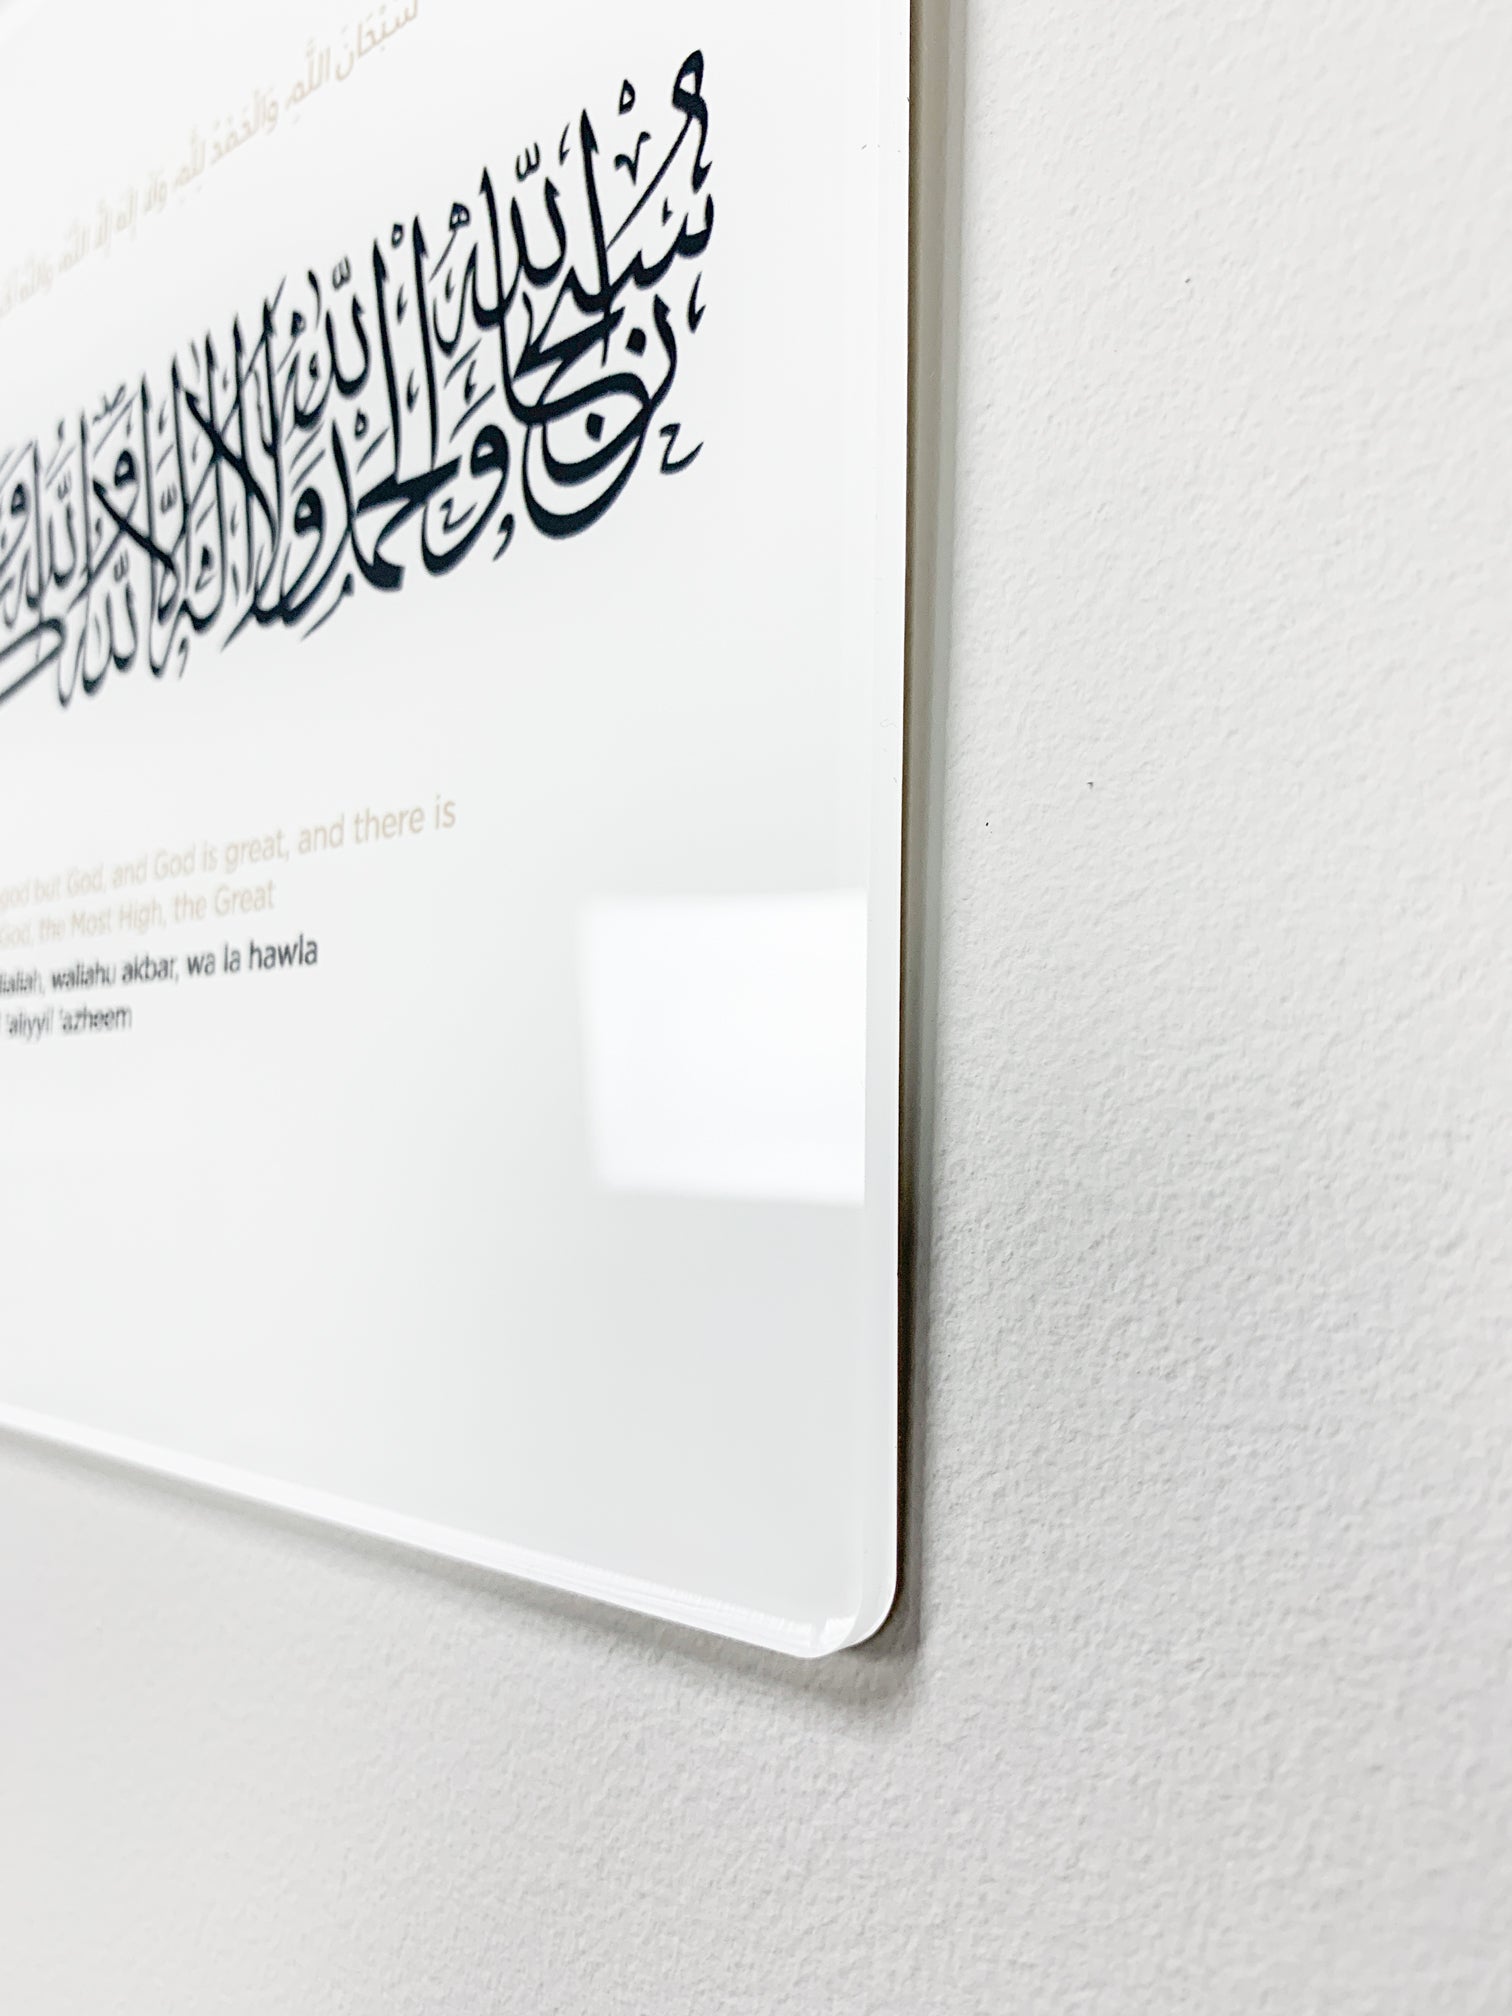 سُبْحَانَ اللَّهِ، وَالْحَمْدُ لِلَّهِ، وَلَا إِلَٰهَ إِلَّا اللَّهُ، وَاللَّهُ
سُبْحَانَ اللّٰهِ وَالْحَمْدُ لِلّٰهِ وَلَا إِلٰهَ إِلَّا اللّٰهُ وَاللّٰهُ
god but God, and God is great, and there is
God, the Most High, the Great
wallahu akbar, wa la hawla
'aliyyil 'azheem